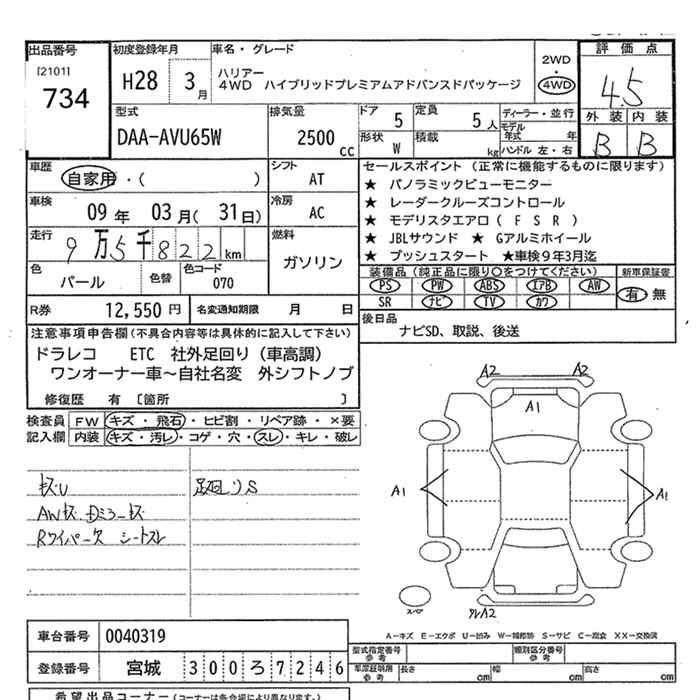 出品番号
[2101]
734
初度登録年月
H28 3月
車名・グレード
ハリアー
4WD ハイブリッドプレミアムアドバンスドパッケージ
2WD
・
4WD
評価点
4.5
外装 内装
B B
型式
DAA-AVU65W
排気量
2500 cc
ドア
5
定員
5人
形状
W
積載
kg
ディーラー・並行
モデル年式 年
ハンドル 左・右
車歴
自家用・( )
シフト
AT
車検
09年 03月( 31日)
冷房
AC
走行
9万5千822km
燃料
ガソリン
色
パール
色替
色コード
070
R券
12,550円
名変通知期限 月 日
セールスポイント(正常に機能するものに限ります)
★ パノラミックビューモニター
★ レーダークルーズコントロール
★ モデリスタエアロ(FSR)
★ JBLサウンド ★ Gアルミホイール
★ プッシュスタート ★車検9年3月迄
装備品(純正品に限り○をつけてください)
PS PW ABS エアB AW
SR ナビ TV カワ
新車保証書
有 無
後日品
ナビSD、取説、後送
注意事項申告欄(不具合内容等は具体的に記入して下さい)
ドラレコ ETC 社外足回り(車高調)
ワンオーナー車～自社名変 外シフトノブ
修復歴 有 [箇所 ]
検査員記入欄
FW キズ・飛石・ヒビ割・リペア跡・×要
内装 キズ・汚レ・コゲ・穴・スレ・キレ・破レ
キズU 足廻りS
AWキズ
Rワイパー欠 シートスレ
A2 A2
A1
A1 A1
スペア
A2
A-キズ E-エクボ U-凹み W-補修跡 S-サビ C-腐食 XX-交換済
車台番号 0040319
登録番号 宮城 300ろ7246
型式指定番号 参考
類別区分番号 参考
車庫証明用 参考 長さ cm 幅 cm 高さ cm
希望出品コーナー(コーナーは各会場により異なります。)